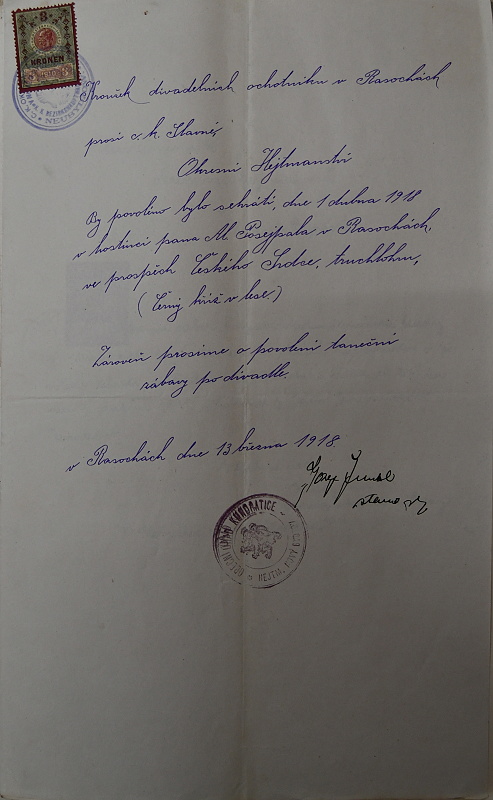 3
KRONEN
Kroužek divadelních ochotníku v Rasochách
prosí c. k. Slavné
Okresní Hejtmanství
By povoleno bylo sehráti, dne 1 dubna 1918
v hostinci pana M. Posejpala v Rasochách,
ve prospěch Českého Srdce, truchlohru,
(Černý kříž v lese.)
Zároveň prosíme o povolení taneční
zábavy po divadle.
v Rasochách dne 13 března 1918
Josef